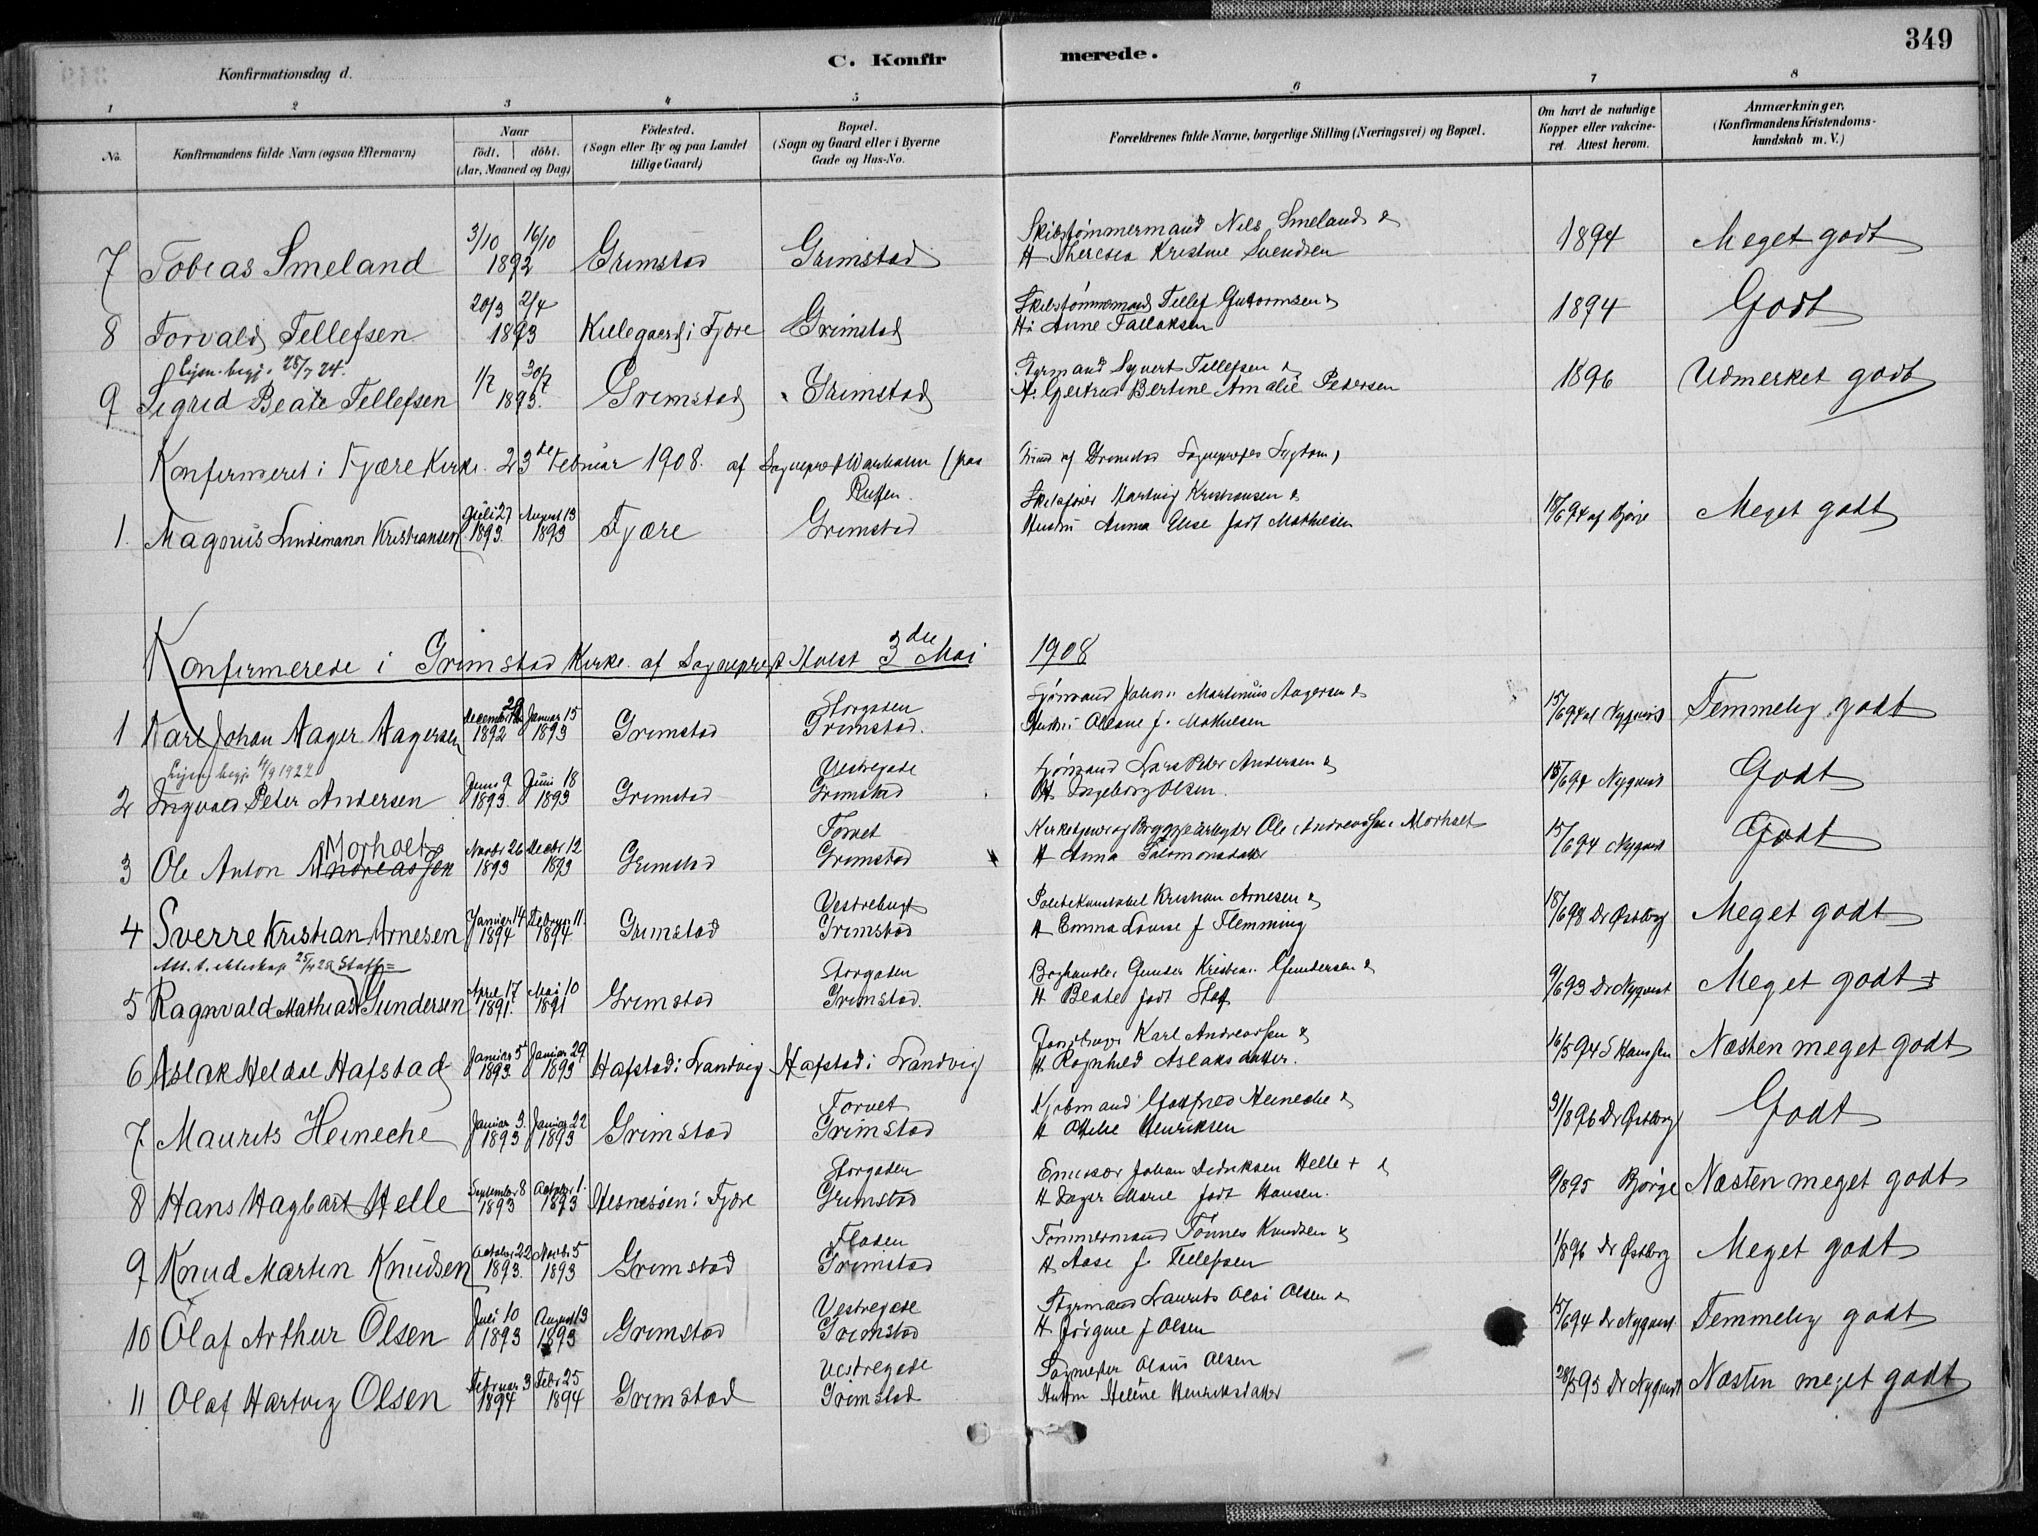 349
C. Konfirmerede.
Konfirmationsdag d.
1 2 3 4 5 6 7 8
No. Konfirmandens fulde Navn (ogsaa Efternavn) Naar födt. döbt. (Aar, Maaned og Dag) Födested. (Sogn eller By og paa Landet tillige Gaard) Bopæl. (Sogn og Gaard eller i Byerne Gade og Hus-No. Forældrenes fulde Navne, borgerlige Stilling (Næringsvei) og Bopæl. Om havt de naturlige Kopper eller vakcineret. Attest herom. Anmærkninger. (Konfirmandens Kristendomskundskab m. V.)
7 Tobias Smeland 3/10 16/10 1892 Grimstad Grimstad Skibstømmermand Nils Smeland & H Theresia Kristine Svendsen 1894 Meget godt
8 Torvald Tellefsen 20/3 2/4 1893 Killegaard i Fjære Grimstad Skibstømmermand Tellef Guttormsen & H: Anne Tallaksen 1894 Godt
Lysn. begj. 28/7 24.
9 Sigrid Beate Tellefsen 1/7 30/7 1893. Grimstad Grimstad Styrmand Syvert Tellefsen & H. Gjertrud Bertine Amalie Petersen 1896 Udmerket godt
Konfirmeret i Fjære Kirke. 23de Februar 1908. af Sognepræst (paa
1. Magnus Lindemann Kristiansen Juli 27 1893. August 13 1893 Fjære Grimstad Skibsfører Hartvig Kristiansen & Hustru Anna Elise født Mathiesen 18/6 94 af Bjørge Meget godt
Konfirmerede i Grimstad Kirke af Sogneprest Holst 3die Mai 1908
1 Karl Johan Aager Aagersen December 29 1892 Januar 15 1893 Grimstad Storgaden Grimstad. Sjømand Johan Martinius Aagersen & Hustru Oleane f. Mathiesen 15/6 94 af Nyquist Temmelig godt
Lysn. begj. 11/9 1922
2 Ingvald Peter Andersen Juni 9 1893. Juni 18 1893 Grimstad Vestregade Grimstad Sjømand Lars Peter Andersen & H. Ingeborg Olsen. 15/6 94 Nyquist Godt
3 Ole Anton Andreassen Morholt Novbr 26 1893 Decbr 12 1893 Grimstad Torvet Grimstad Kirketjener og Bryggearbeyder Ole Andreassen Morholt H Anna Salomonsdatter 15/6 94 Nyquist Godt
4 Sverre Kristian Arnesen Januar 14 1894 Februar 11. 1894 Grimstad Vestrebugt Grimstad Politikonstabel Kristian Arnesen & H Emma Lovise f Flemming 18/6 98 Dr Østberg Meget godt
Att. t. ekteskap 25/4 28 Staff=
5 Ragnvald Mathias Gundersen April 17 1891. Mai 10 1891 Grimstad Storgaden Grimstad. Boghandler Gunder Kristian Gundersen & H Beate født Staf 9/6 93 Dr Nyquist Meget godt +
6 Aslak Heldal Hafstad Januar 5 1893. Januar 29 1893 Hafstad i Landvig Hafstad i Landvig Karl Andreassen & H Ragnhild Aslaksdatter. 16/5 94 S Hanssen Næsten meget godt
7 Maurits Heineche Januar 3. 1893 Januar 22 1893 Grimstad Torvet Grimstad Kjøbmand Gotfried Heineche & H Othelie Henriksen 31/8 96 Dr Østberg Godt
8 Hans Hagbart Helle September 8 1893 October 1. 1893 Hesnesøen i Fjære Storgaden Grimstad Johan Didriksen Helle + & H Dager Marie født Hansen. 9/8 95 Bjørge Næsten meget godt
9 Knud Martin Knudsen October 22 1893. Novbr 5 1893 Grimstad Floden Grimstad Tømmermand Tønnes Knudsen & H Aase f. Tellefsen 1/8 96 Dr Østberg Meget godt
10 Olaf Arthur Olsen Juli 10 1893 August 13 1893 Grimstad Vestregade Grimstad Styrmand Laurits Olai Olsen & H Jørgine f Olsen 15/6 94 Dr Nyquist Temmelig godt
11 Olaf Hartvig Olsen Februar 3 1894 Febr 25 1894 Grimstad Vestregade Grimstad Olaus Olsen Hustru Helene Henriksdatter 28/5 95 Dr Nyquist Næsten meget godt